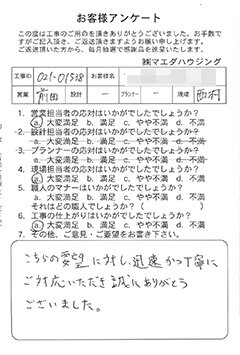 お客様アンケート
この度は工事のご用命を頂きありがとうございました。お手数で
すがご記入頂き、ご返送頂きますようお願い申し上げます。
ご返送頂いた方から、毎月抽選で感謝品を送呈いたします。
㈱マエダハウジング
工事ID 021-01528 お客様名
営業 前田 設計 ー プランナー ー 現場 西村
1. 営業担当者の応対はいかがでしたでしょうか?
a. 大変満足 b. 満足 c. やや不満 d. 不満
2. 設計担当者の応対はいかがでしたでしょうか?
a. 大変満足 b. 満足 c. やや不満 d. 不満
3. プランナーの応対はいかがでしたでしょうか?
a. 大変満足 b. 満足 c. やや不満 d. 不満
4. 現場担当者の応対はいかがでしたでしょうか?
a. 大変満足 b. 満足 c. やや不満 d. 不満
5. 職人のマナーはいかがでしたでしょうか?
a. 大変満足 b. 満足 c. やや不満 d. 不満
それはどの職人でしょうか?( )
6. 工事の仕上がりはいかがでしたでしょうか?
a. 大変満足 b. 満足 c. やや不満 d. 不満
7. その他、ご意見・ご要望をお書き下さい。
こちらの要望に対し、迅速かつ丁寧に
ご対応いただき誠にありがとう
ございました。